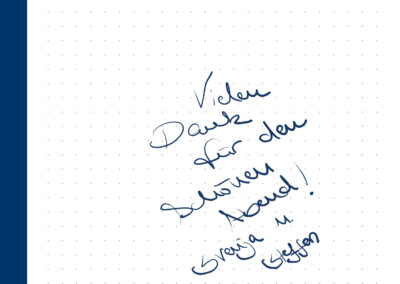 Vielen
Dank
für den
Schönen
Abend!
Svenja u.
Steffen